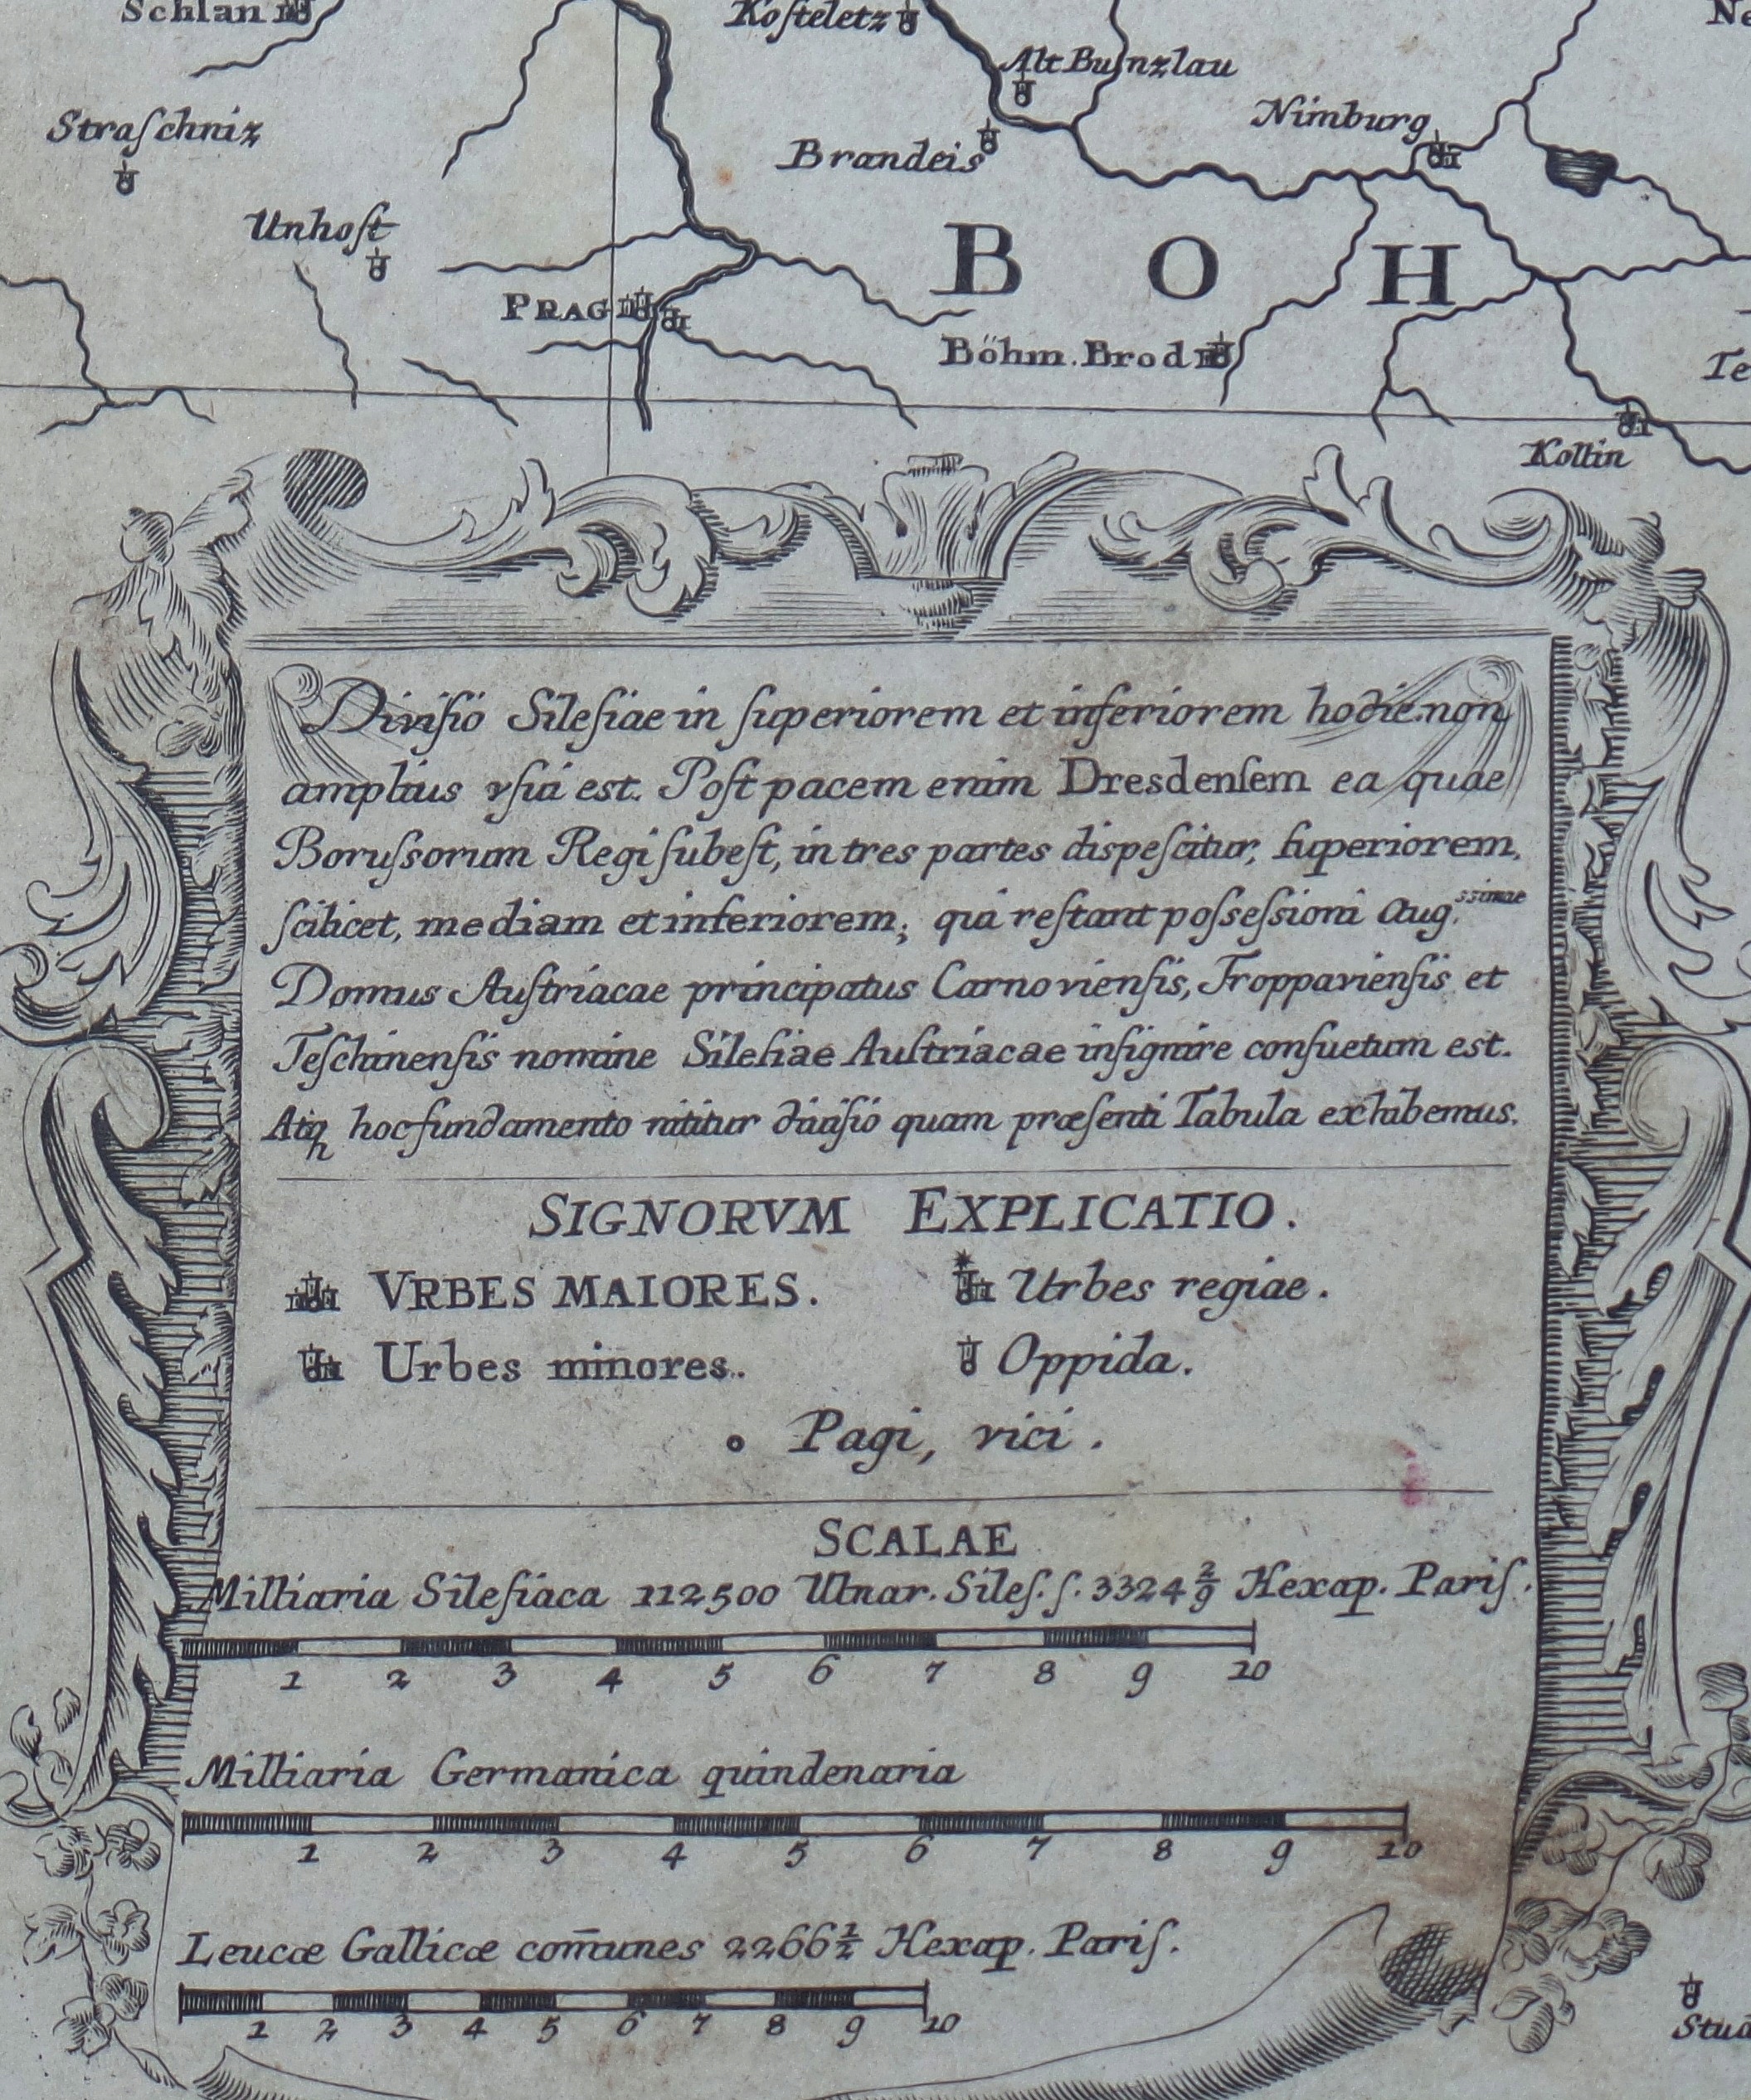 Schlan
Koſteletz
Alt Bunzlau
Straſchniz
Nimburg
Brandeis
Unhoſt
B O H
PRAG
Böhm. Brod
Te
Kollin
Diviſio Sileſiae in ſuperiorem et inferiorem hodie non
amplius vſui est. Poſt pacem enim Dresdenſem ea quae
Boruſsorum Regi ſubeſt, in tres partes dispeſcitur, ſuperiorem,
ſcilicet, mediam et inferiorem; qui reſtant poſseſsioni Aug.ssimae
Domus Auſtriacae principatus Carnovienſis, Troppavienſis et
Teſchinenſis nomine Sileſiae Auſtriacae inſignire conſuetum est.
Atq hoc fundamento nititur diviſio quam præſenti Tabula exhibemus.
SIGNORVM EXPLICATIO.
VRBES MAIORES. Urbes regiae.
Urbes minores. Oppida.
Pagi, vici.
SCALAE
Milliaria Sileſiaca 112500 Ulnar. Sileſ. ſ. 3324 2/9 Hexap. Pariſ.
1 2 3 4 5 6 7 8 9 10
Milliaria Germanica quindenaria
1 2 3 4 5 6 7 8 9 10
Leucæ Gallicæ com̄unes 2266 1/2 Hexap. Pariſ.
1 2 3 4 5 6 7 8 9 10